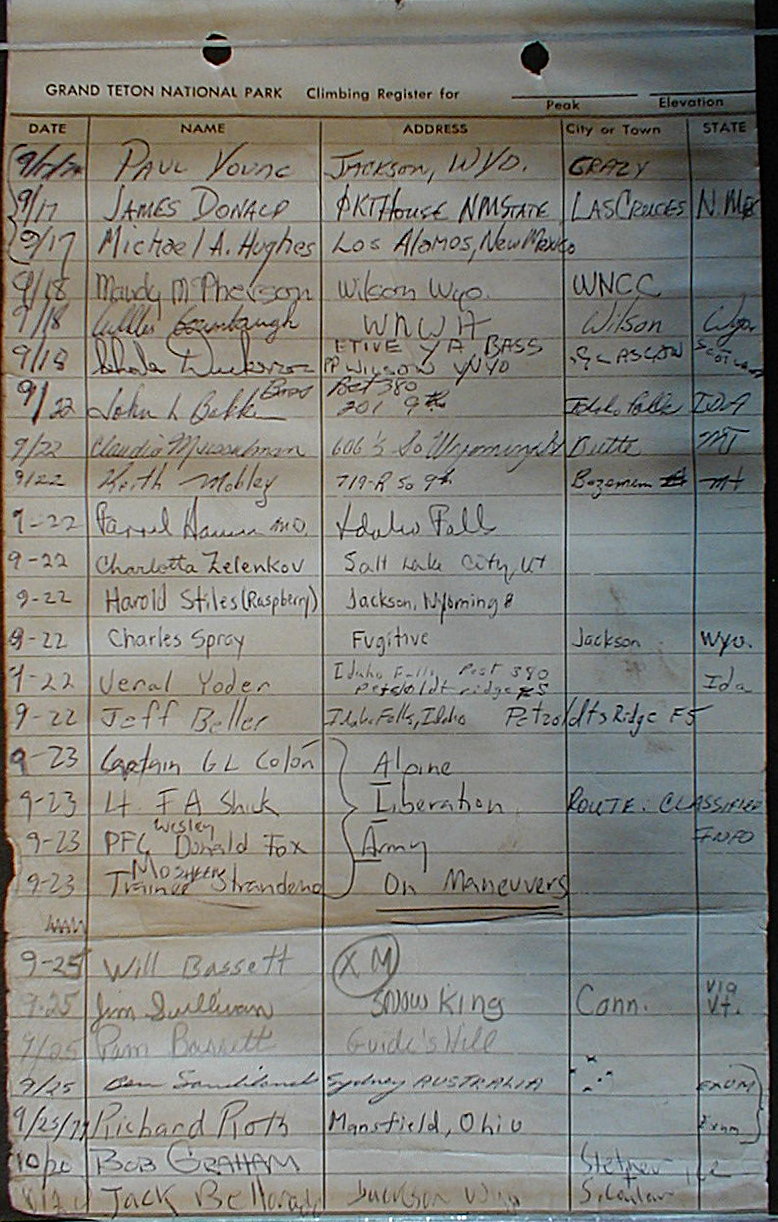 GRAND TETON NATIONAL PARK Climbing Register for
Peak Elevation
DATE NAME ADDRESS City or Town STATE
PAUL YOUNG JACKSON, WYO. CRAZY
9/17 JAMES DONALD ΦKT HOUSE NMSTATE LAS CRUCES N. MEX
9/17 Michael A. Hughes Los Alamos, New Mexico
9/18 Mandy McPherson Wilson Wyo. WNCC
9/18 WNWH Wilson Wyo
9/18 ETIVE YA BASS
PP WILSON WYO GLASGOW SCOTLAND
9/22 John L 201 9th Idaho Falls IDA
9/22 Claudia Musselman 606½ So Wyoming Butte MT
9/22 Keith Mobley 719-R So 9th Bozeman MT
9-22 M.D. Idaho Falls
9-22 Charlotta Zelenkov Salt Lake City, Ut
9-22 Harold Stiles (Raspberry) Jackson, Wyoming
9-22 Charles Spray Fugitive Jackson Wyo.
9-22 Veral Yoder Idaho Falls Post 380 Ida
Petzoldt ridge F5
9-22 Jeff Beller Idaho Falls, Idaho Petzoldts Ridge F5
9-23 Captain G L Colón Alpine
9-23 Lt. F A Shick Liberation ROUTE: CLASSIFIED
9-23 PFC Wesley Donald Fox Army INFO
9-23 Trainee Strandeno On Maneuvers
9-25 Will Bassett XM
9-25 Jim Sullivan Snow King Conn. via Vt.
9/25 Pam Bassett Guide's Hill
9/25 Sydney AUSTRALIA EXUM
9/25/79 Richard Roth Mansfield, Ohio Exum
10/20 BOB GRAHAM
Jack Jackson Wyo